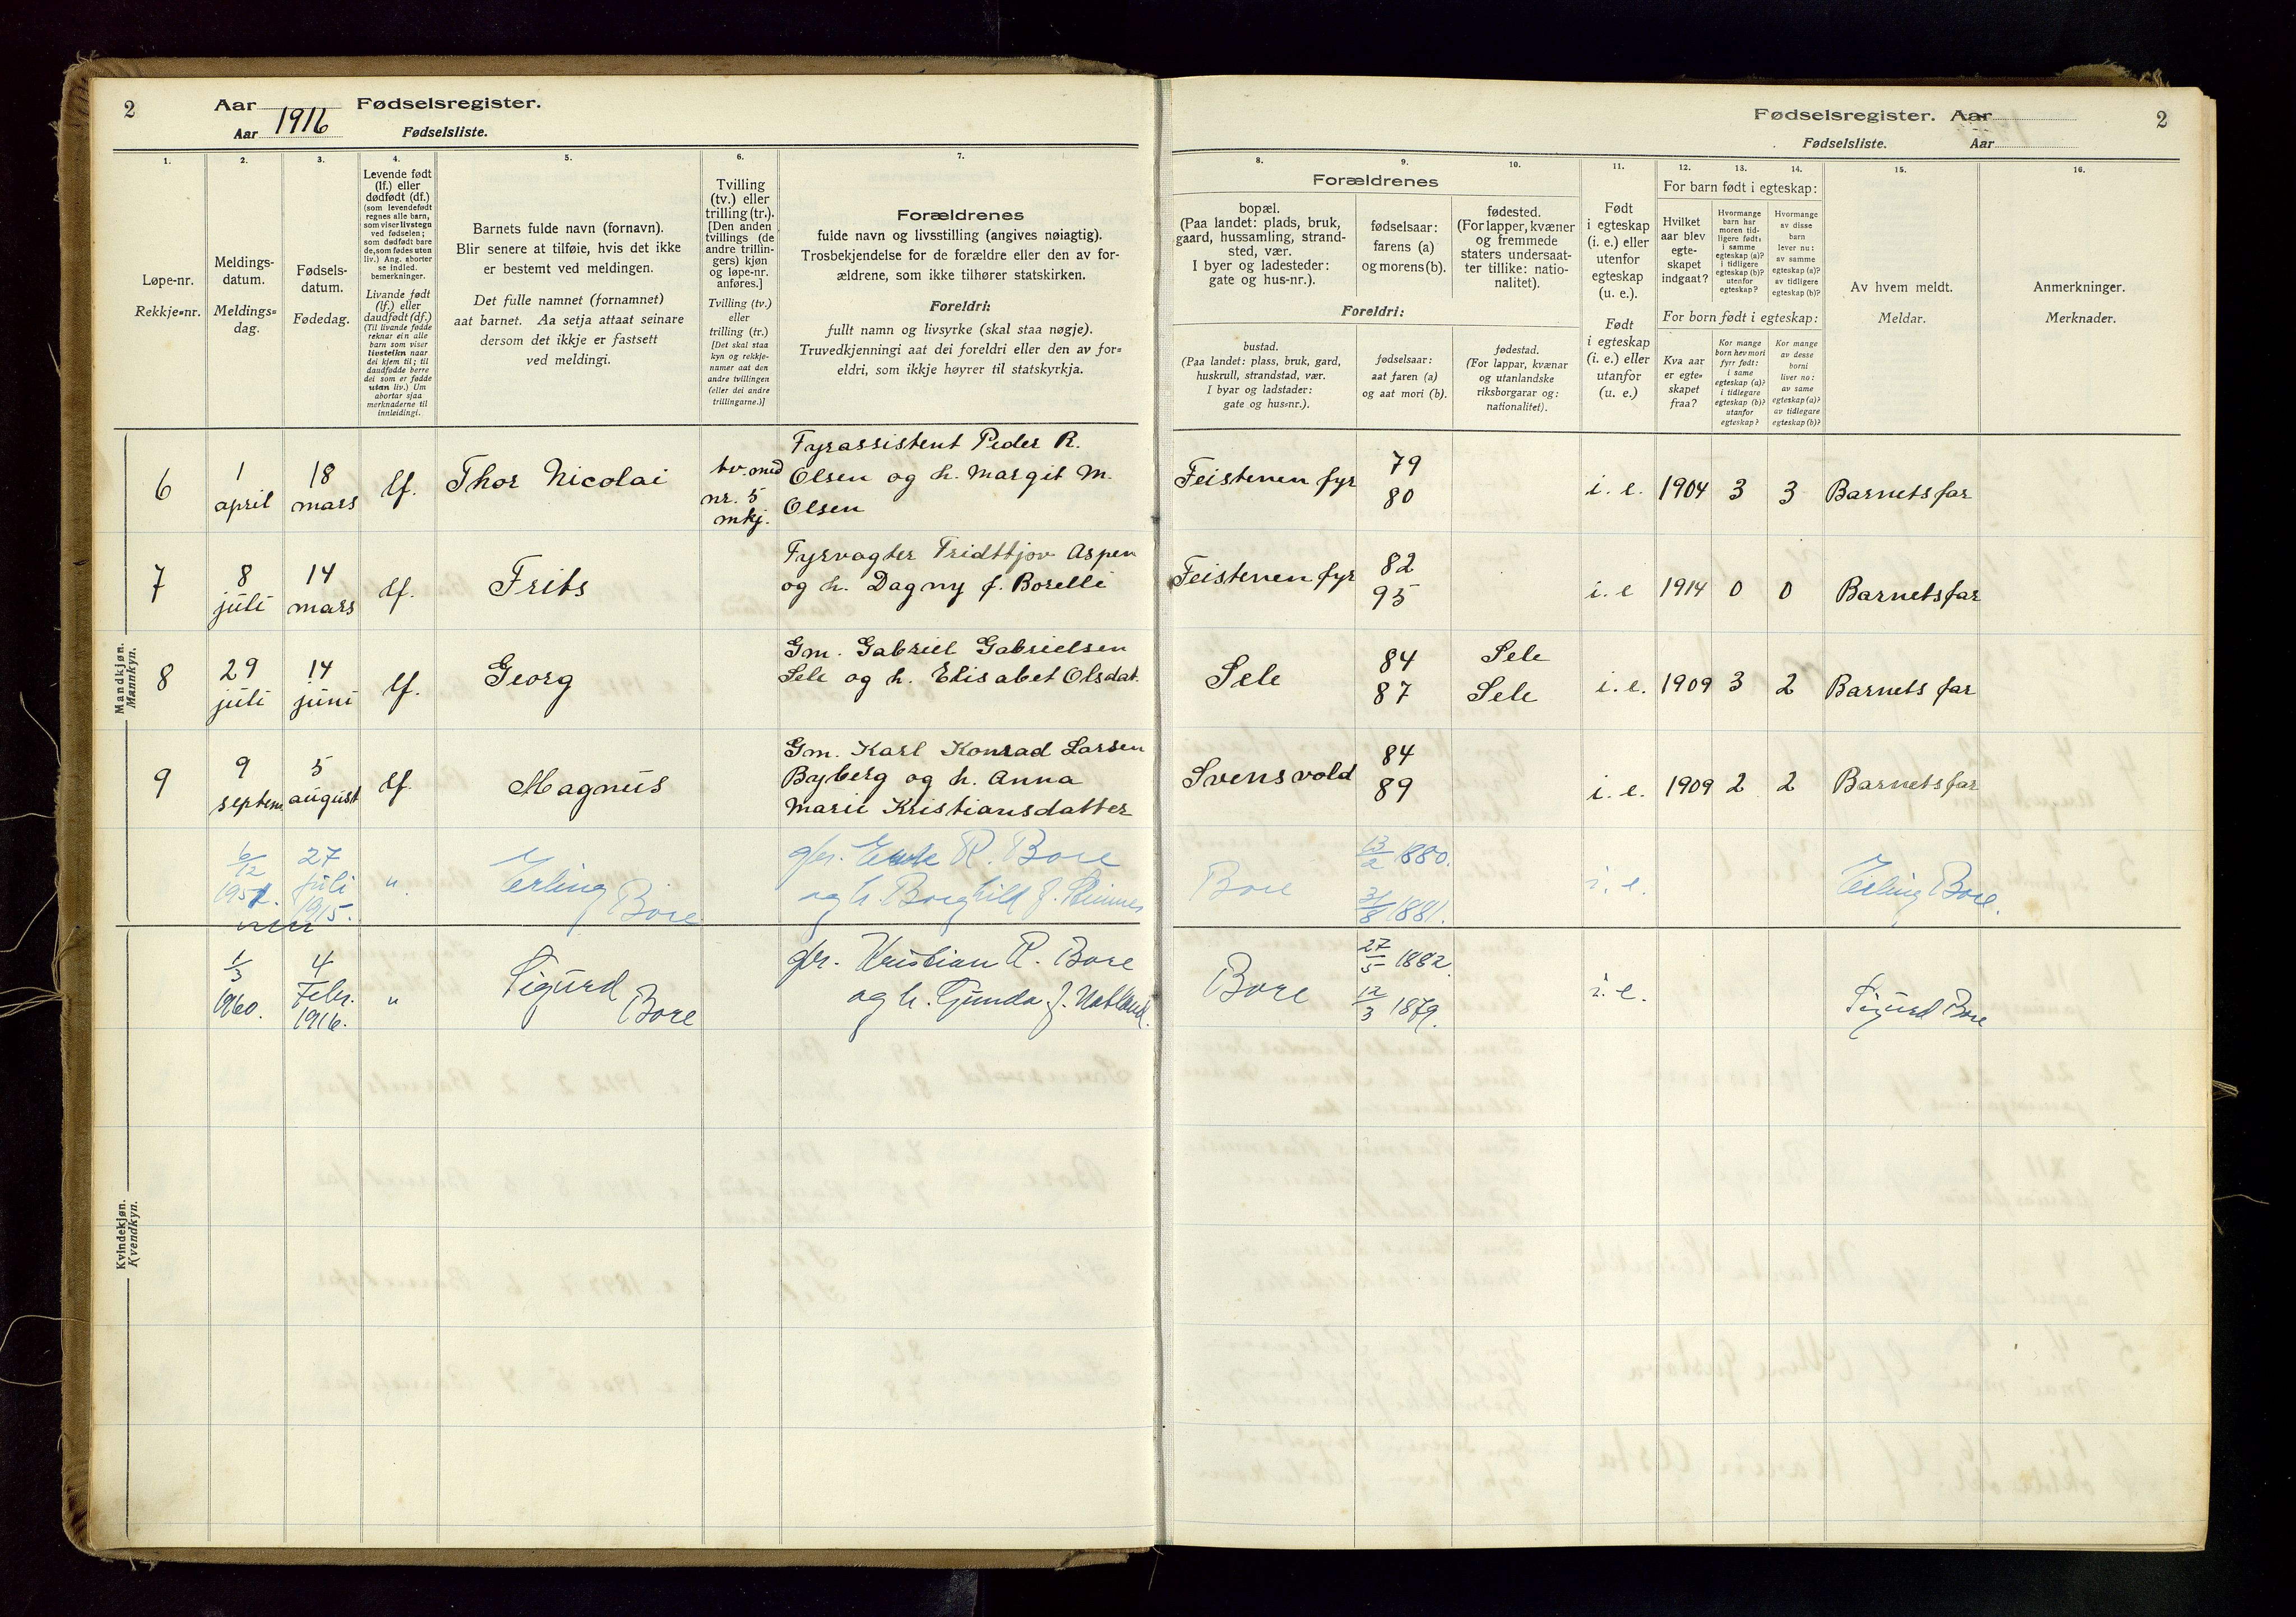 2 Aar Fødselsregister.
Aar 1916 Fødselsliste.
Fødselsregister. Aar 2
Fødselsliste. Aar
1. 2. 3. 4. 5. 6. 7.
Løpe-nr.
Rekkje=nr.
Meldings-
datum.
Meldings=
dag.
Fødsels-
datum.
Fødedag.
Levende født
(lf.) eller
dødfødt (df.)
(som levendefødt
regnes alle barn,
som viser livstegn
ved fødselen;
som dødfødt bare
de, som fødes uten
liv.) Ang. aborter
se indled.
bemerkninger.
Livande født
(lf.) eller
daudfødt (df.)
(Til livande fødde
reknar ein alle
barn som viser
livsteikn naar
dei kjem til; til
daudfødde berre
dei som er fødde
utan liv.) Um
abortar sjaa
merknaderne til
innleidingi.
Barnets fulde navn (fornavn).
Blir senere at tilføie, hvis det ikke
er bestemt ved meldingen.
Det fulle namnet (fornamnet)
aat barnet. Aa setja attaat seinare
dersom det ikkje er fastsett
ved meldingi.
Tvilling
(tv.) eller
trilling (tr.).
[Den anden
tvillings (de
andre trillin-
gers) kjøn
og løpe-nr.
anføres.]
Tvilling (tv.)
eller
trilling (tr.)
[Det skal staa
kyn og rekkje-
numer aat den
andre tvillingen
(eller dei andre
trillingarne.)]
Forældrenes
fulde navn og livsstilling (angives nøiagtig).
Trosbekjendelse for de forældre eller den av for-
ældrene, som ikke tilhører statskirken.
Foreldri:
fullt namn og livsyrke (skal staa nøgje).
Truvedkjenningi aat dei foreldri eller den av for=
eldri, som ikkje høyrer til statskyrkja.
8. 9. 10. 11. 12. 13. 14. 15. 16.
Forældrenes
bopæl.
(Paa landet: plads, bruk,
gaard, hussamling, strand-
sted, vær.
I byer og ladesteder:
gate og hus-nr.).
fødselsaar:
farens (a)
og morens (b).
fødested.
(For lapper, kvæner
og fremmede
staters undersaat-
ter tillike: natio-
nalitet).
Foreldri:
bustad.
(Paa landet: plass, bruk, gard,
huskrull, strandstad, vær.
I byar og ladstader:
gate og hus=nr.).
fødselsaar:
aat faren (a)
og aat mori (b).
fødestad.
(For lappar, kvænar
og utanlandske
riksborgarar og:
nationalitet).
Født
i egteskap
(i. e.) eller
utenfor
egteskap
(u. e.).
Født
i egteskap
(i. e.) eller
utanfor
(u. e.)
For barn født i egteskap:
Hvilket
aar blev
egte-
skapet
indgaat?
Hvormange
barn har
moren tid-
ligere født:
i samme
egteskap (a)?
i tidligere
egteskap (b)?
utenfor
egteskap?
Hvormange
av disse
barn
lever nu:
av samme
egteskap (a)?
av tidligere
egteskap (b)?
For born født i egteskap:
Kva aar
er egte=
skapet
fraa?
Kor mange
born hev mori
fyrr født:
i same
egteskap (a)?
i tidlegare
egteskap (b)?
utanfor
egteskap?
Kor mange
av desse
borni
liver no:
av same
egteskap (a)?
av tidlegare
egteskap (b)?
Av hvem meldt.
Meldar.
Anmerkninger.
Merknader.
Mandkjøn.
Mannkyn.
6 1 april 18 mars lf. Thor Nicolai tv. med nr. 5 mkj. Fyrassistent Peder R.
Olsen og h. Margit M.
Olsen
Feistenen fyr 79 80 i. e. 1904 3 3 Barnets far
7 8 juli 14 mars lf. Frits Fyrvogter Fridttjov Aspen
og h. Dagny f. Borelli
Feistenen fyr 82 95 i. e 1914 0 0 Barnets far
8 29 juli 14 juni lf. Georg Gm. Gabriel Gabrielsen
Sele og h. Elisabet Olsdat.
Sele 84 87 Sele Sele i. e. 1909 3 2 Barnets far
9 9 septem 5 august lf. Magnus Gm. Karl Konrad Larsen
Byberg og h. Anna
Marie Kristiansdatter
Svensvold 84 89 i. e. 1909 2 2 Barnets far
6/12 27 juli 1915. " Erling Bore gbr. R. Bore
og h. Borghild f.
Bore 13/2 1880. 31/8 1881. i. e. Erling Bore.
1/3 1960. 4 Febr. 1916. " Sigurd Bore gbr. Kristian R. Bore
og h. Gunda f.
Bore 27/5 1882. 12/3 1879. i. e. Sigurd Bore
Kvindekjøn.
Kvendkyn.